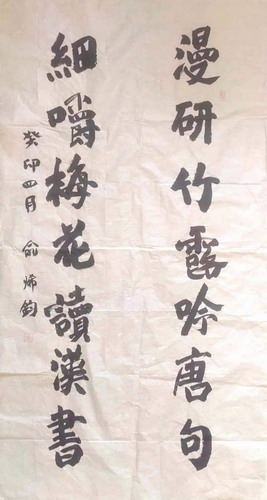 漫研竹露吟唐句
細嚼梅花讀漢書
癸卯四月